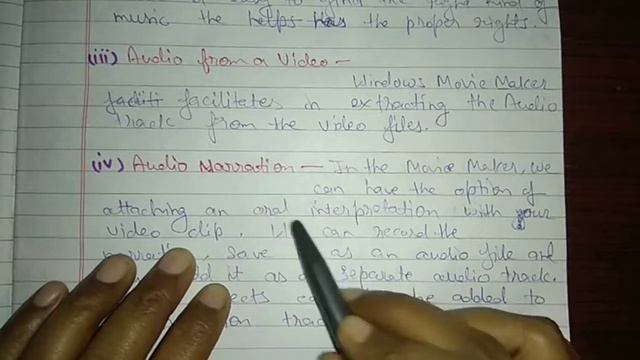 easy to find the right kind of
music the helps has the proper rights.
(iii) Audio from a Video –
Windows Movie Maker
faciliti facilitates in extracting the Audio
track from the video files.
(iv) Audio Narration – In the Movie Maker, we
can have the option of
attaching an oral interpretation with your
video clip. can record the
save as an audio file
it as separate audio track.
be added to